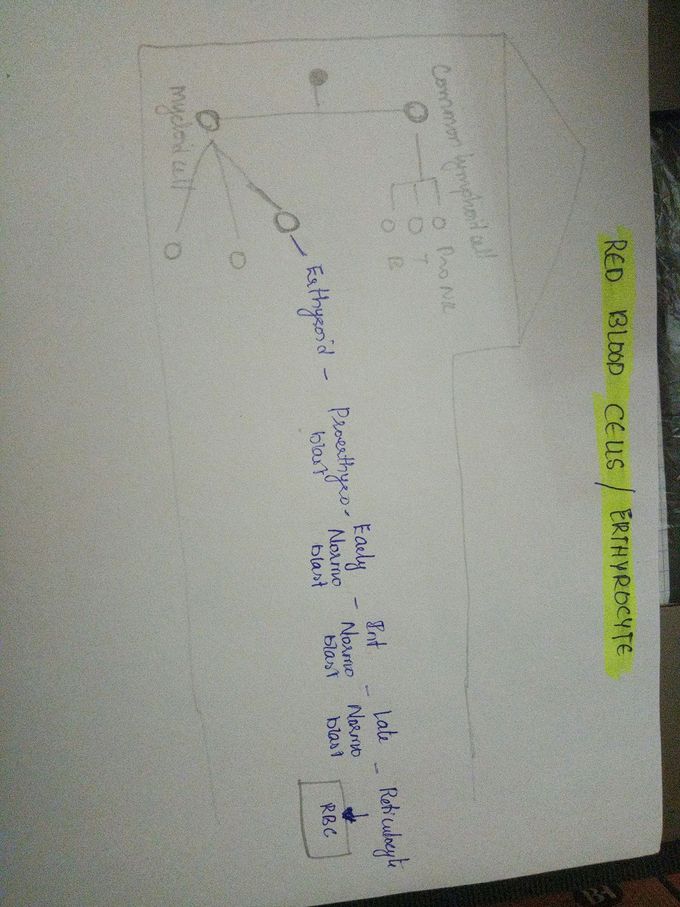 RED BLOOD CELLS / ERTHYROCYTE
Common lymphoid cell
Pro NK
T
B
Myeloid cell
Erthyroid - Proerthyro- Early - Int - Late - Reticulocyte
blast Normo Normo Normo
blast blast blast
RBC